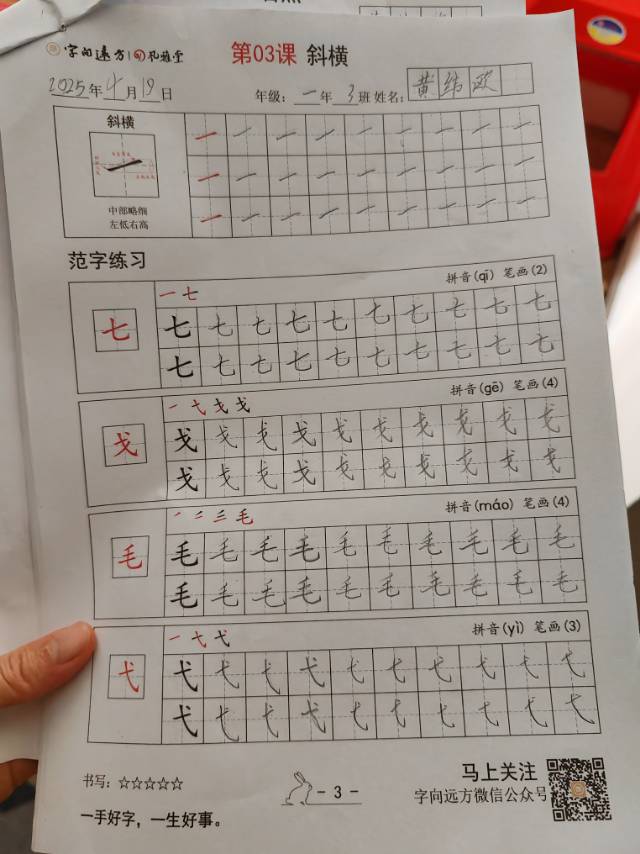 字向远方 孔雅堂
第03课 斜横
2025年4月19日 年级：一年 3班 姓名：黄纬欧
斜横
中部略细
左低右高
范字练习
拼音(qī) 笔画(2)
一 七
七 七 七 七 七 七 七 七 七 七 七
七 七 七 七 七 七 七 七 七 七
拼音(gē) 笔画(4)
一 弋 戈 戈
戈 戈 戈 戈 戈 戈 戈 戈 戈 戈 戈
戈 戈 戈 戈 戈 戈 戈 戈 戈 戈
拼音(máo) 笔画(4)
毛
毛 毛 毛 毛 毛 毛 毛 毛 毛 毛 毛
毛 毛 毛 毛 毛 毛 毛 毛 毛 毛
拼音(yì) 笔画(3)
一 弋 弋
弋 弋 弋 弋 弋 弋 弋 弋 弋 弋 弋
弋 弋 弋 弋 弋 弋 弋 弋 弋 弋
书写：☆☆☆☆☆
一手好字，一生好事。
- 3 -
马上关注
字向远方微信公众号